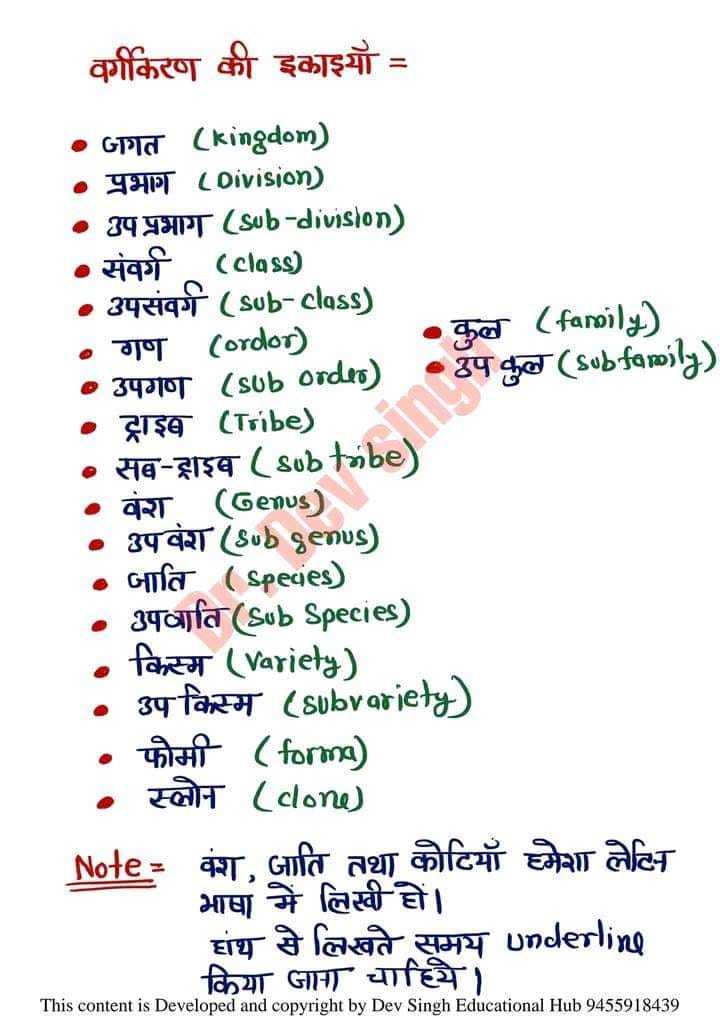 वर्गीकरण की इकाइयाँ =
• जगत (kingdom)
• प्रभाग (Division)
• उप प्रभाग (sub-division)
• संवर्ग (class)
• उपसंवर्ग (sub-class)
• गण (ordor)
• उपगण (sub order)
• कुल (family)
• उप कुल (subfamily)
• ट्राइब (Tribe)
• सब-ट्राइब (sub tribe)
• वंश (Genus)
• उप वंश (sub genus)
• जाति (species)
• उपजाति (Sub Species)
• किस्म (Variety)
• उप किस्म (subvariety)
• फोर्मा (forma)
• क्लोन (clone)
Note = वंश, जाति तथा कोटियाँ हमेशा लेटिन
भाषा में लिखी हों।
हाथ से लिखते समय underline
किया जाना चाहिये।
Dr. Dev singh
This content is Developed and copyright by Dev Singh Educational Hub 9455918439